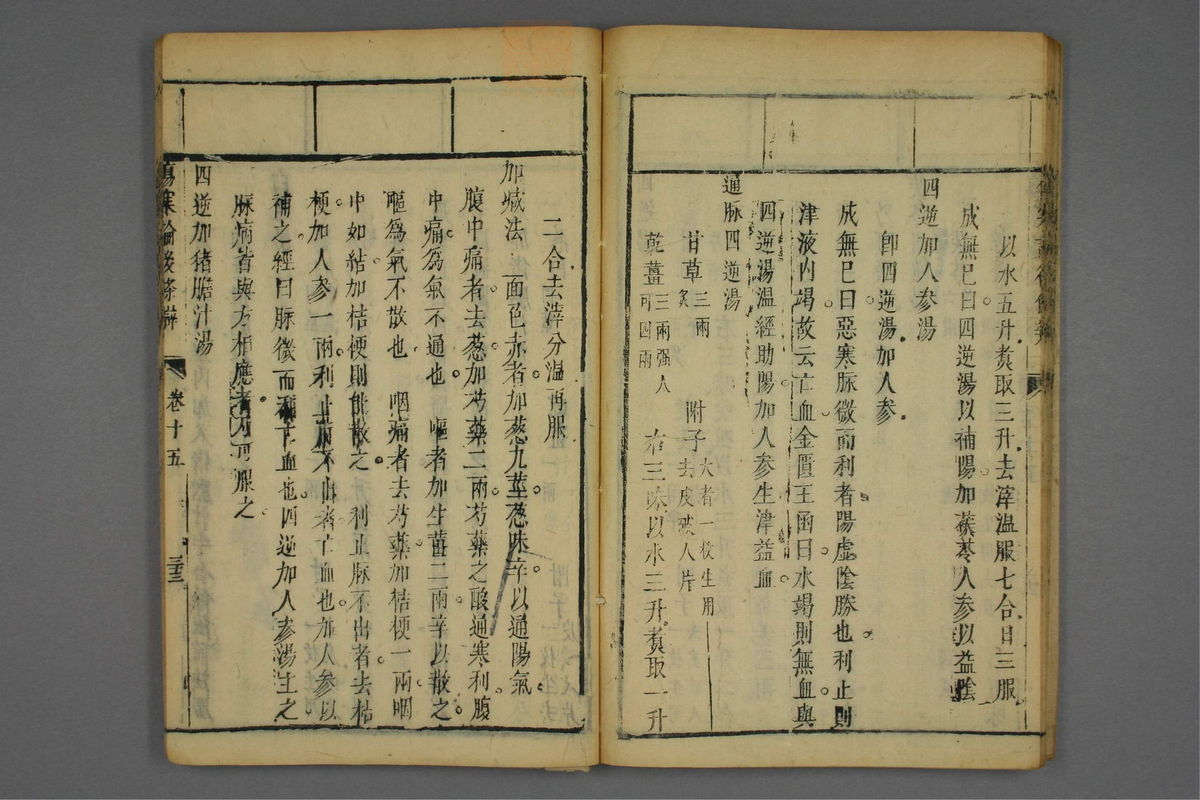 以水五升煑取三升去滓温服七合日三服
成無已曰四逆湯以補陽加茯苓人参以益陰
四逆加人参湯
卽四逆湯加人参
成無已曰惡寒脉微而利者陽虛陰勝也利止則
津液内竭故云亡血金匱玉函曰水竭則無血與
四逆湯温經助陽加人参生津益血
通脉四逆湯
甘草三兩炙 附子大者一枚生用去皮破八片
乾薑三兩强人可四兩 右三味以水三升煑取一升
二合去滓分温再服
加減法 面色赤者加葱九莖葱味辛以通陽氣
腹中痛者去葱加芍藥二兩芍藥之酸通寒利腹
中痛爲氣不通也 嘔者加生薑二兩辛以散之
嘔爲氣不散也 咽痛者去芍藥加桔梗一兩咽
中如結加桔梗則能散之 利止脉不出者去桔
梗加人参一兩利止脉不出者亡血也加人参以
補之經曰脉微而利亡血也四逆加人参湯主之
脉病皆與方相應者乃可服之
四逆加猪膽汁湯
傷寒論後條辯 卷十五 三三